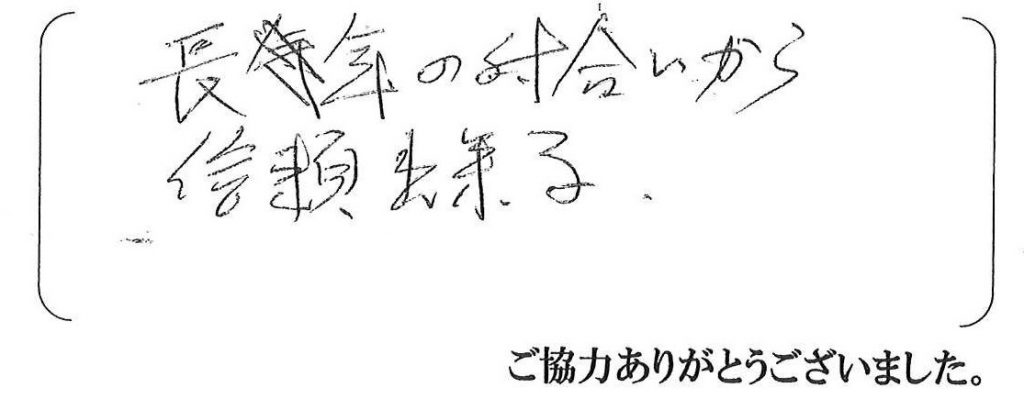 長年の付合いから
信頼出来る.
ご協力ありがとうございました。